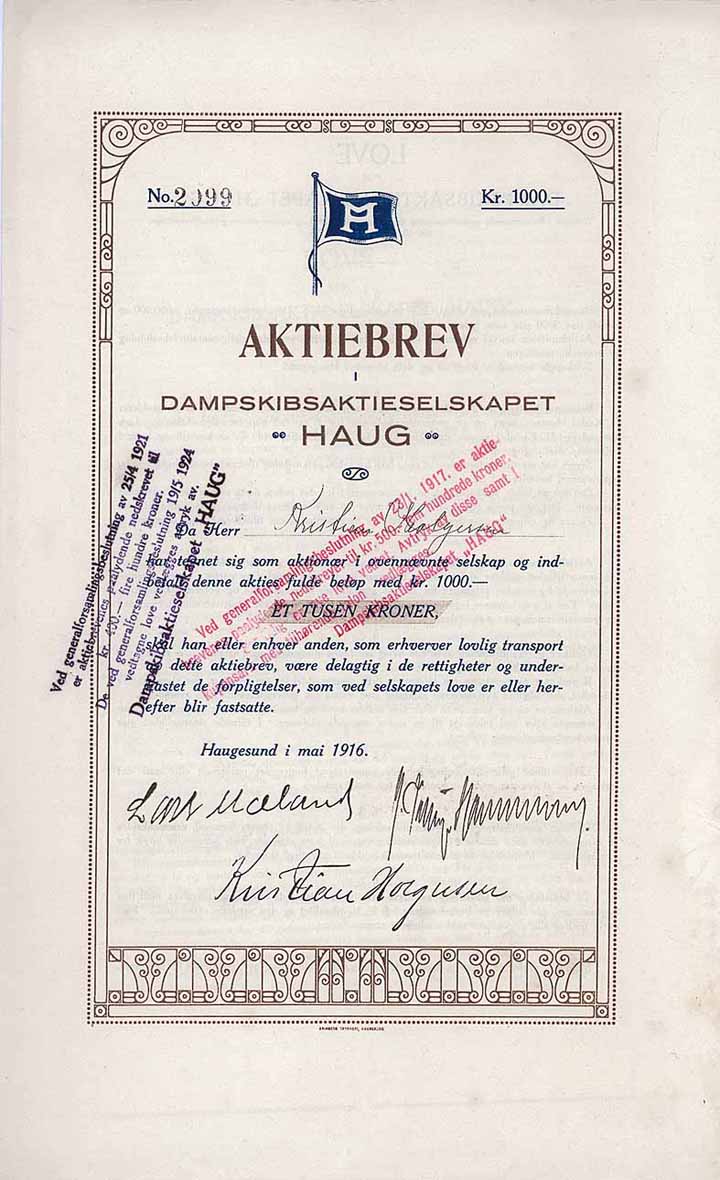 No. 2099
Kr. 1000.—
H
AKTIEBREV
I
DAMPSKIBSAKTIESELSKAPET
HAUG
Da Herr Kristian
har tegnet sig som aktionær i ovennævnte selskap og ind-
denne akties fulde beløp med kr. 1000.—
ET TUSEN KRONER,
skal han eller enhver anden, som erhverver lovlig transport
på dette aktiebrev, være delagtig i de rettigheter og under-
kastet de forpligtelser, som ved selskapets love er eller her-
efter blir fastsatte.
Haugesund i mai 1916.
Kristian
Ved generalforsamlingsbeslutning av 25/4 1921
er aktiebrevenes paalydende nedskrevet til
kr. 400.— fire hundre kroner.
De ved generalforsamlingsbeslutning 19/5 1924
vedtagne love vedlægges avtryk av.
Dampskibsaktieselskapet „HAUG"
Ved generalforsamlingsbeslutning av 23/1. 1917. er aktie-
brevenes paalydende nedskrevet til kr. 500. fem hundrede kroner,
love vedtaget. Avtryk av disse samt 1
med tilhørende vedlægges.
Dampskibsaktieselskapet „HAUG"